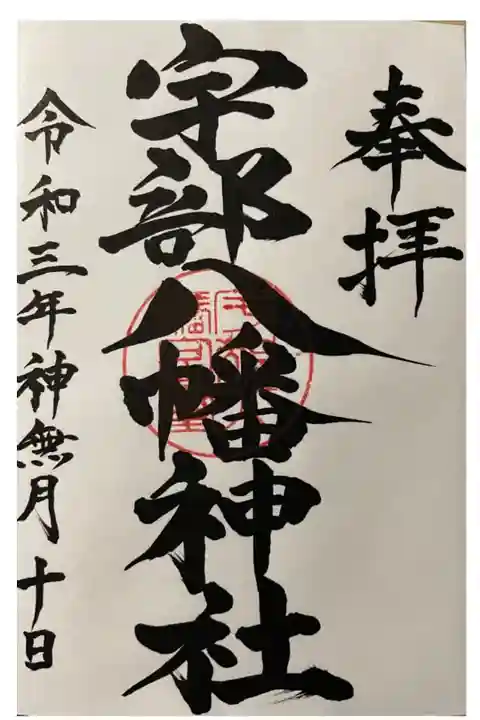 奉拝
宇部八幡神社
令和三年神無月十日